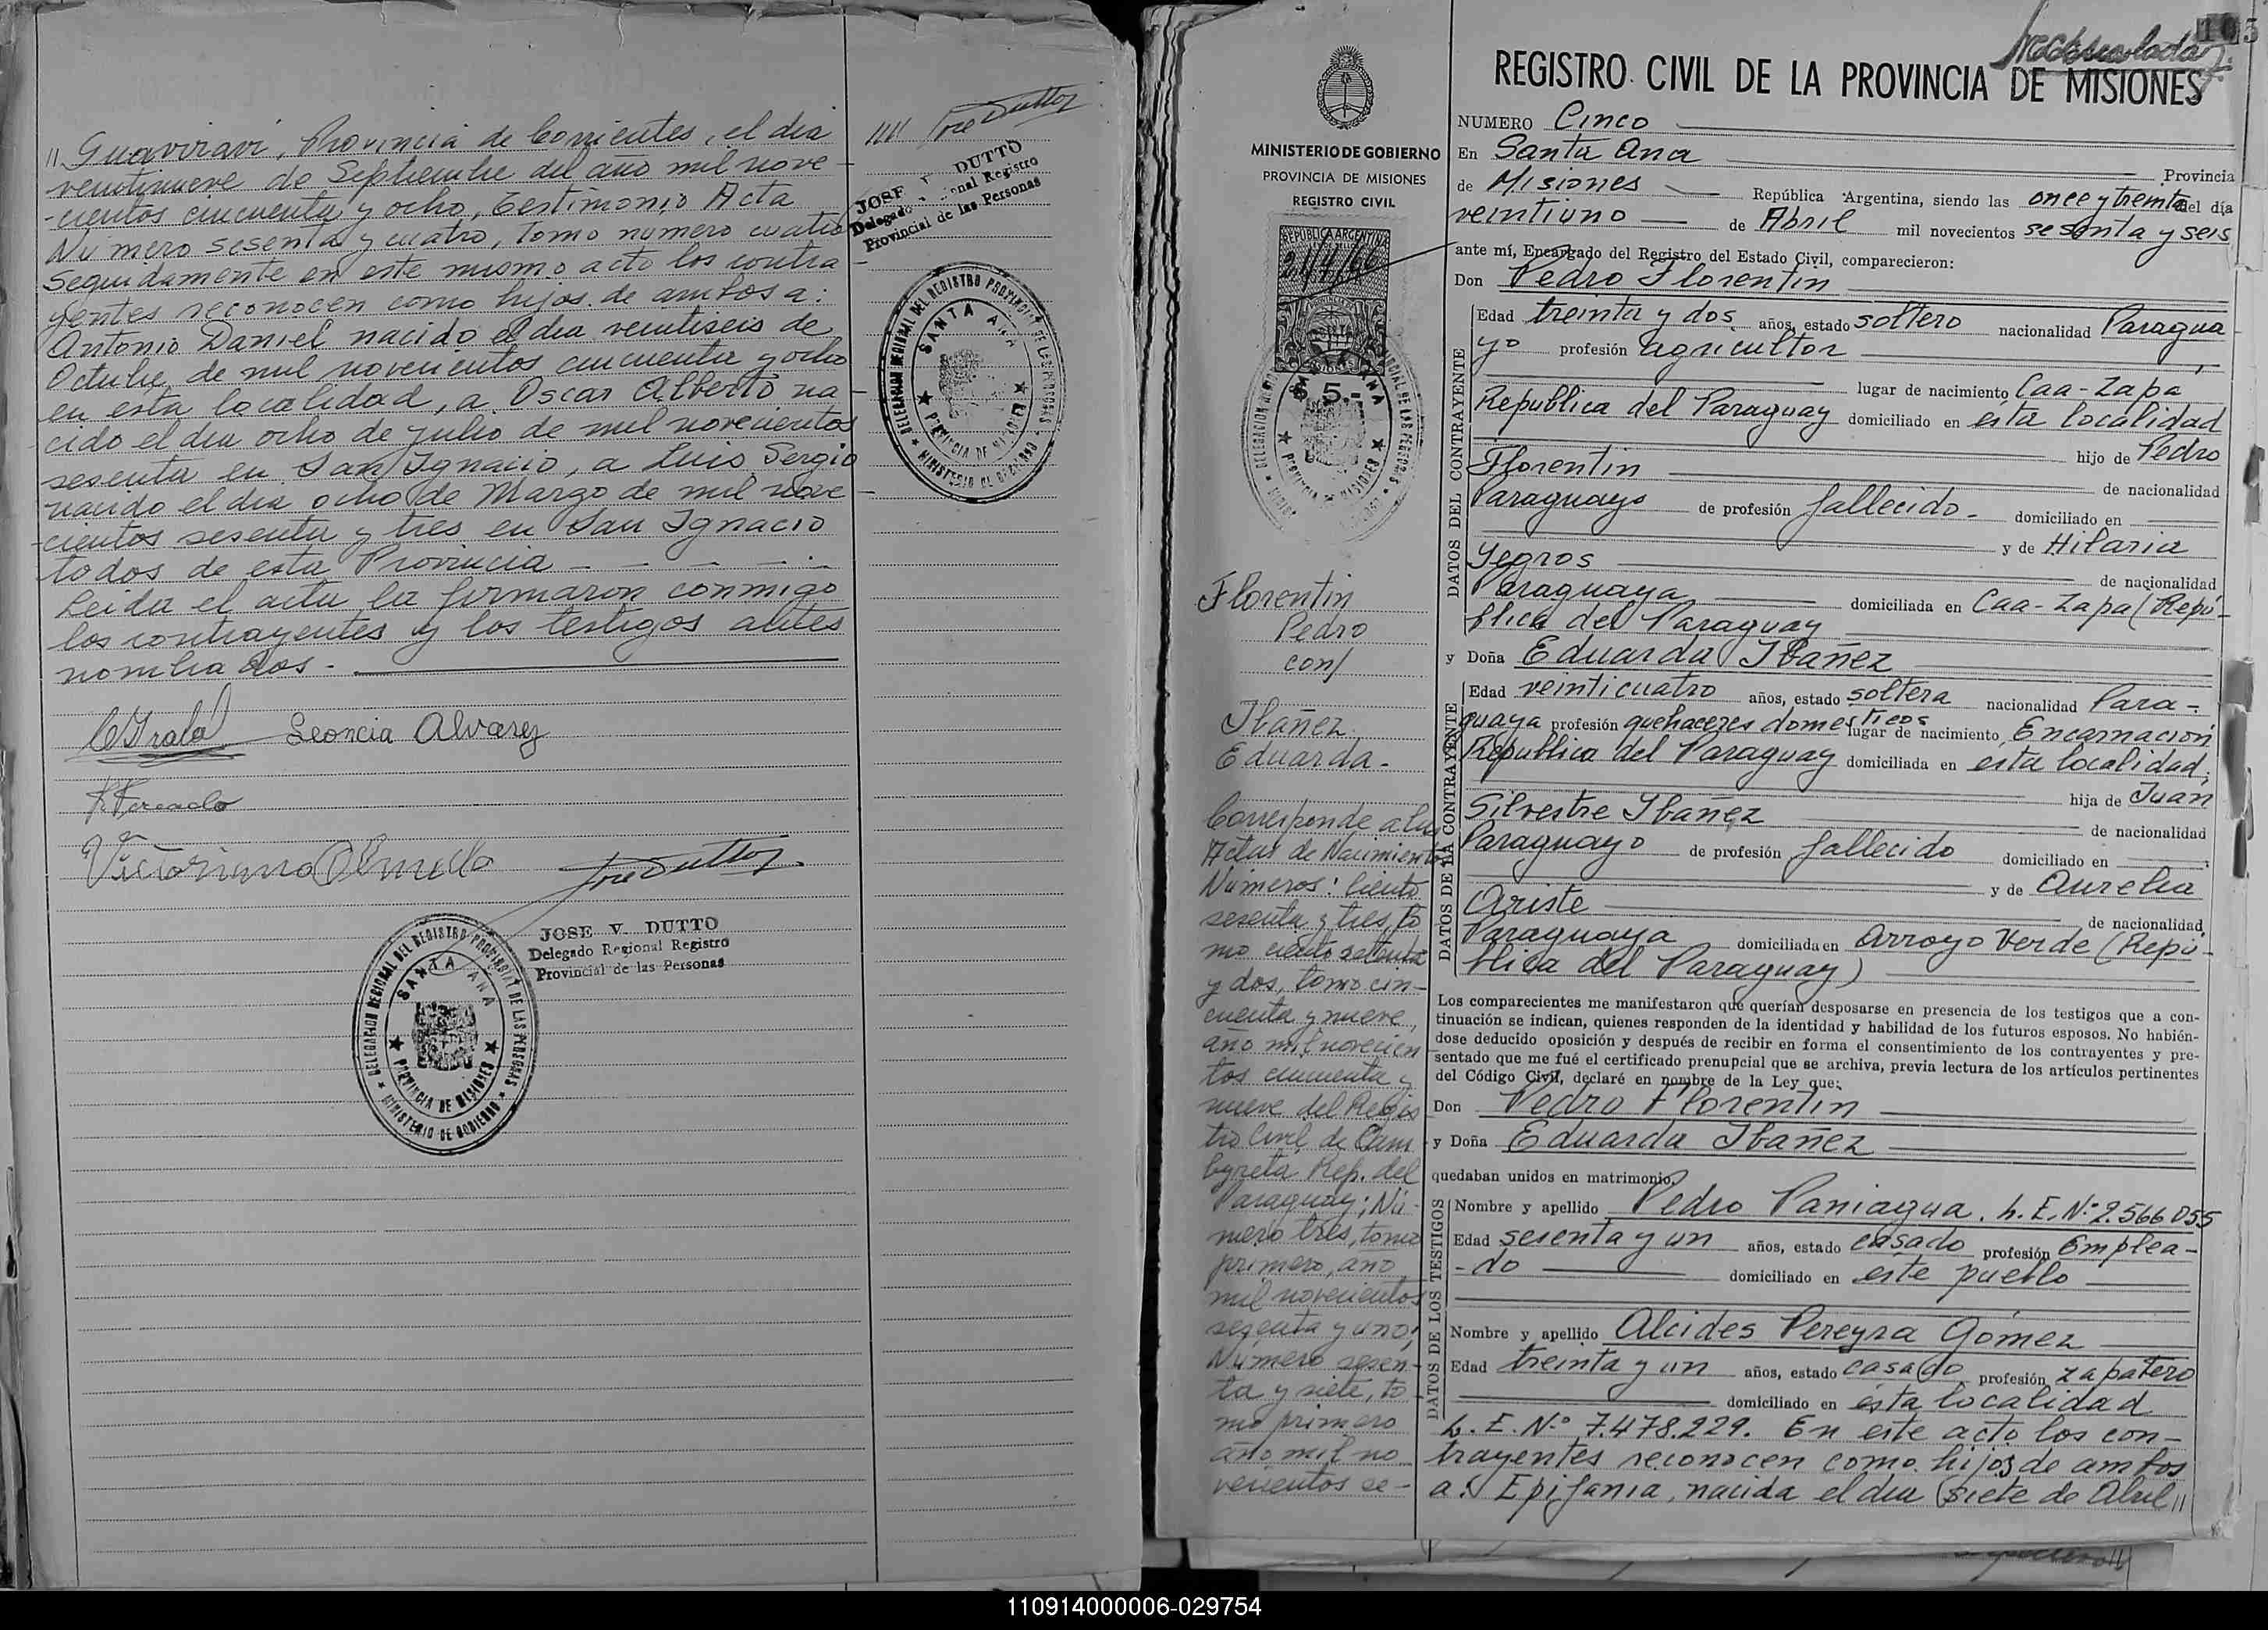 " Guaviraví, Provincia de Corrientes, el dia
veintinueve de Septiembre del año mil nove-
-cientos cincuenta y ocho, Testimonio Acta
Número sesenta y cuatro, Tomo numero cuatro
Seguidamente en este mismo acto los contra-
yentes reconocen como hijos de ambos a:
Antonio Daniel nacido el dia veintiseis de
Octubre de mil novecientos cincuenta y ocho
en esta localidad, a Oscar Alberto na-
cido el dia ocho de Julio de mil novecientos
sesenta en San Ignacio, a Luis Sergio
nacido el dia ocho de Marzo de mil nove-
-cientos sesenta y tres en San Ignacio
todos de esta Provincia - - - - -
Leida el acta la firmaron conmigo
los contrayentes y los testigos antes
nombrados.-
Leoncia Alvarez
JOSE V. DUTTO
Delegado Regional Registro
Provincial de las Personas
DELEGACION REGIONAL DEL REGISTRO PROVINCIAL DE LAS PERSONAS
SANTA ANA
PROVINCIA DE MISIONES
MINISTERIO DE GOBIERNO
JOSE V. DUTTO
Delegado Regional Registro
Provincial de las Personas
DELEGACION REGIONAL DEL REGISTRO PROVINCIAL DE LAS PERSONAS
SANTA ANA
PROVINCIA DE MISIONES
MINISTERIO DE GOBIERNO
MINISTERIO DE GOBIERNO
PROVINCIA DE MISIONES
REGISTRO CIVIL
REPUBLICA ARGENTINA
21/4/66
$ 5.-
Florentin
Pedro
con/
Ibañez
Eduarda-
Corresponde a las
Actas de Nacimientos
Números: Ciento
sesenta y tres, to
mo ciento setenta
y dos, tomo cin-
cuenta y nueve,
año mil novecien-
tos cincuenta y
nueve del Regis
tro Civil de Cam
byreta Rep. del
Paraguay; Nú-
mero tres, tomo
primero, año
mil novecientos
sesenta y uno;
Número sesen-
ta y siete, to-
mo primero
año mil no
vecientos se-
REGISTRO CIVIL DE LA PROVINCIA DE MISIONES
NUMERO Cinco
En Santa Ana Provincia
de Misiones República Argentina, siendo las once y treinta del día
veintiuno de Abril mil novecientos sesenta y seis
ante mí, Encargado del Registro del Estado Civil, comparecieron:
Don Pedro Florentin
DATOS DEL CONTRAYENTE
Edad treinta y dos años, estado soltero nacionalidad Paragua-
yo profesión agricultor
lugar de nacimiento Caa-Zapa,
Republica del Paraguay domiciliado en esta localidad
hijo de Pedro
Florentin de nacionalidad
Paraguayo de profesión fallecido- domiciliado en
y de Hilaria
Yegros de nacionalidad
Paraguaya domiciliada en Caa-Zapa (Repú-
blica del Paraguay
y Doña Eduarda Ibañez
DATOS DE LA CONTRAYENTE
Edad veinticuatro años, estado soltera nacionalidad Para-
guaya profesión quehaceres domesticos lugar de nacimiento Encarnacion
Republica del Paraguay domiciliada en esta localidad;
hija de Juan
Silvestre Ibañez de nacionalidad
Paraguayo de profesión fallecido domiciliado en
y de Aurelia
Ariste de nacionalidad
Paraguaya domiciliada en Arroyo Verde (Repu-
blica del Paraguay)
Los comparecientes me manifestaron que querían desposarse en presencia de los testigos que a con-
tinuación se indican, quienes responden de la identidad y habilidad de los futuros esposos. No habién-
dose deducido oposición y después de recibir en forma el consentimiento de los contrayentes y pre-
sentado que me fué el certificado prenupcial que se archiva, previa lectura de los artículos pertinentes
del Código Civil, declaré en nombre de la Ley que:
Don Pedro Florentin
y Doña Eduarda Ibañez
quedaban unidos en matrimonio.
DATOS DE LOS TESTIGOS
Nombre y apellido Pedro Paniagua. L.E.Nº 2.566.055
Edad sesenta y un años, estado casado profesión Emplea-
-do domiciliado en este pueblo
Nombre y apellido Alcides Pereyra Gómez
Edad treinta y un años, estado casado profesión zapatero
domiciliado en ésta localidad
L.E.Nº 7.478.229. En este acto los con-
trayentes reconocen como hijos de ambos
a: Epifania, nacida el dia siete de Abril "
110914000006-029754